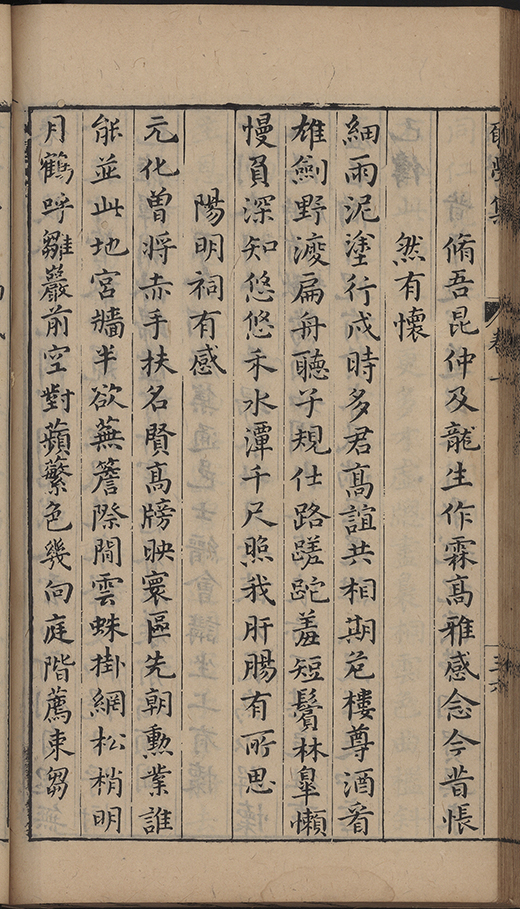 脩吾昆仲及龍生作霖高雅感念今昔悵
然有懷
細雨泥塗行戍時多君高誼共相期危樓尊酒看
雄劍野渡扁舟聽子規仕路蹉跎羞短鬢林臯懶
慢負深知悠悠禾水潭千尺照我肝腸有所思
陽明祠有感
元化曽將赤手扶名賢高牓映寰區先朝勲業誰
能並此地宮牆半欲蕪簷際閒雲蛛掛網松梢明
月鶴呼雛巖前空對蘋蘩色幾向庭階薦束芻